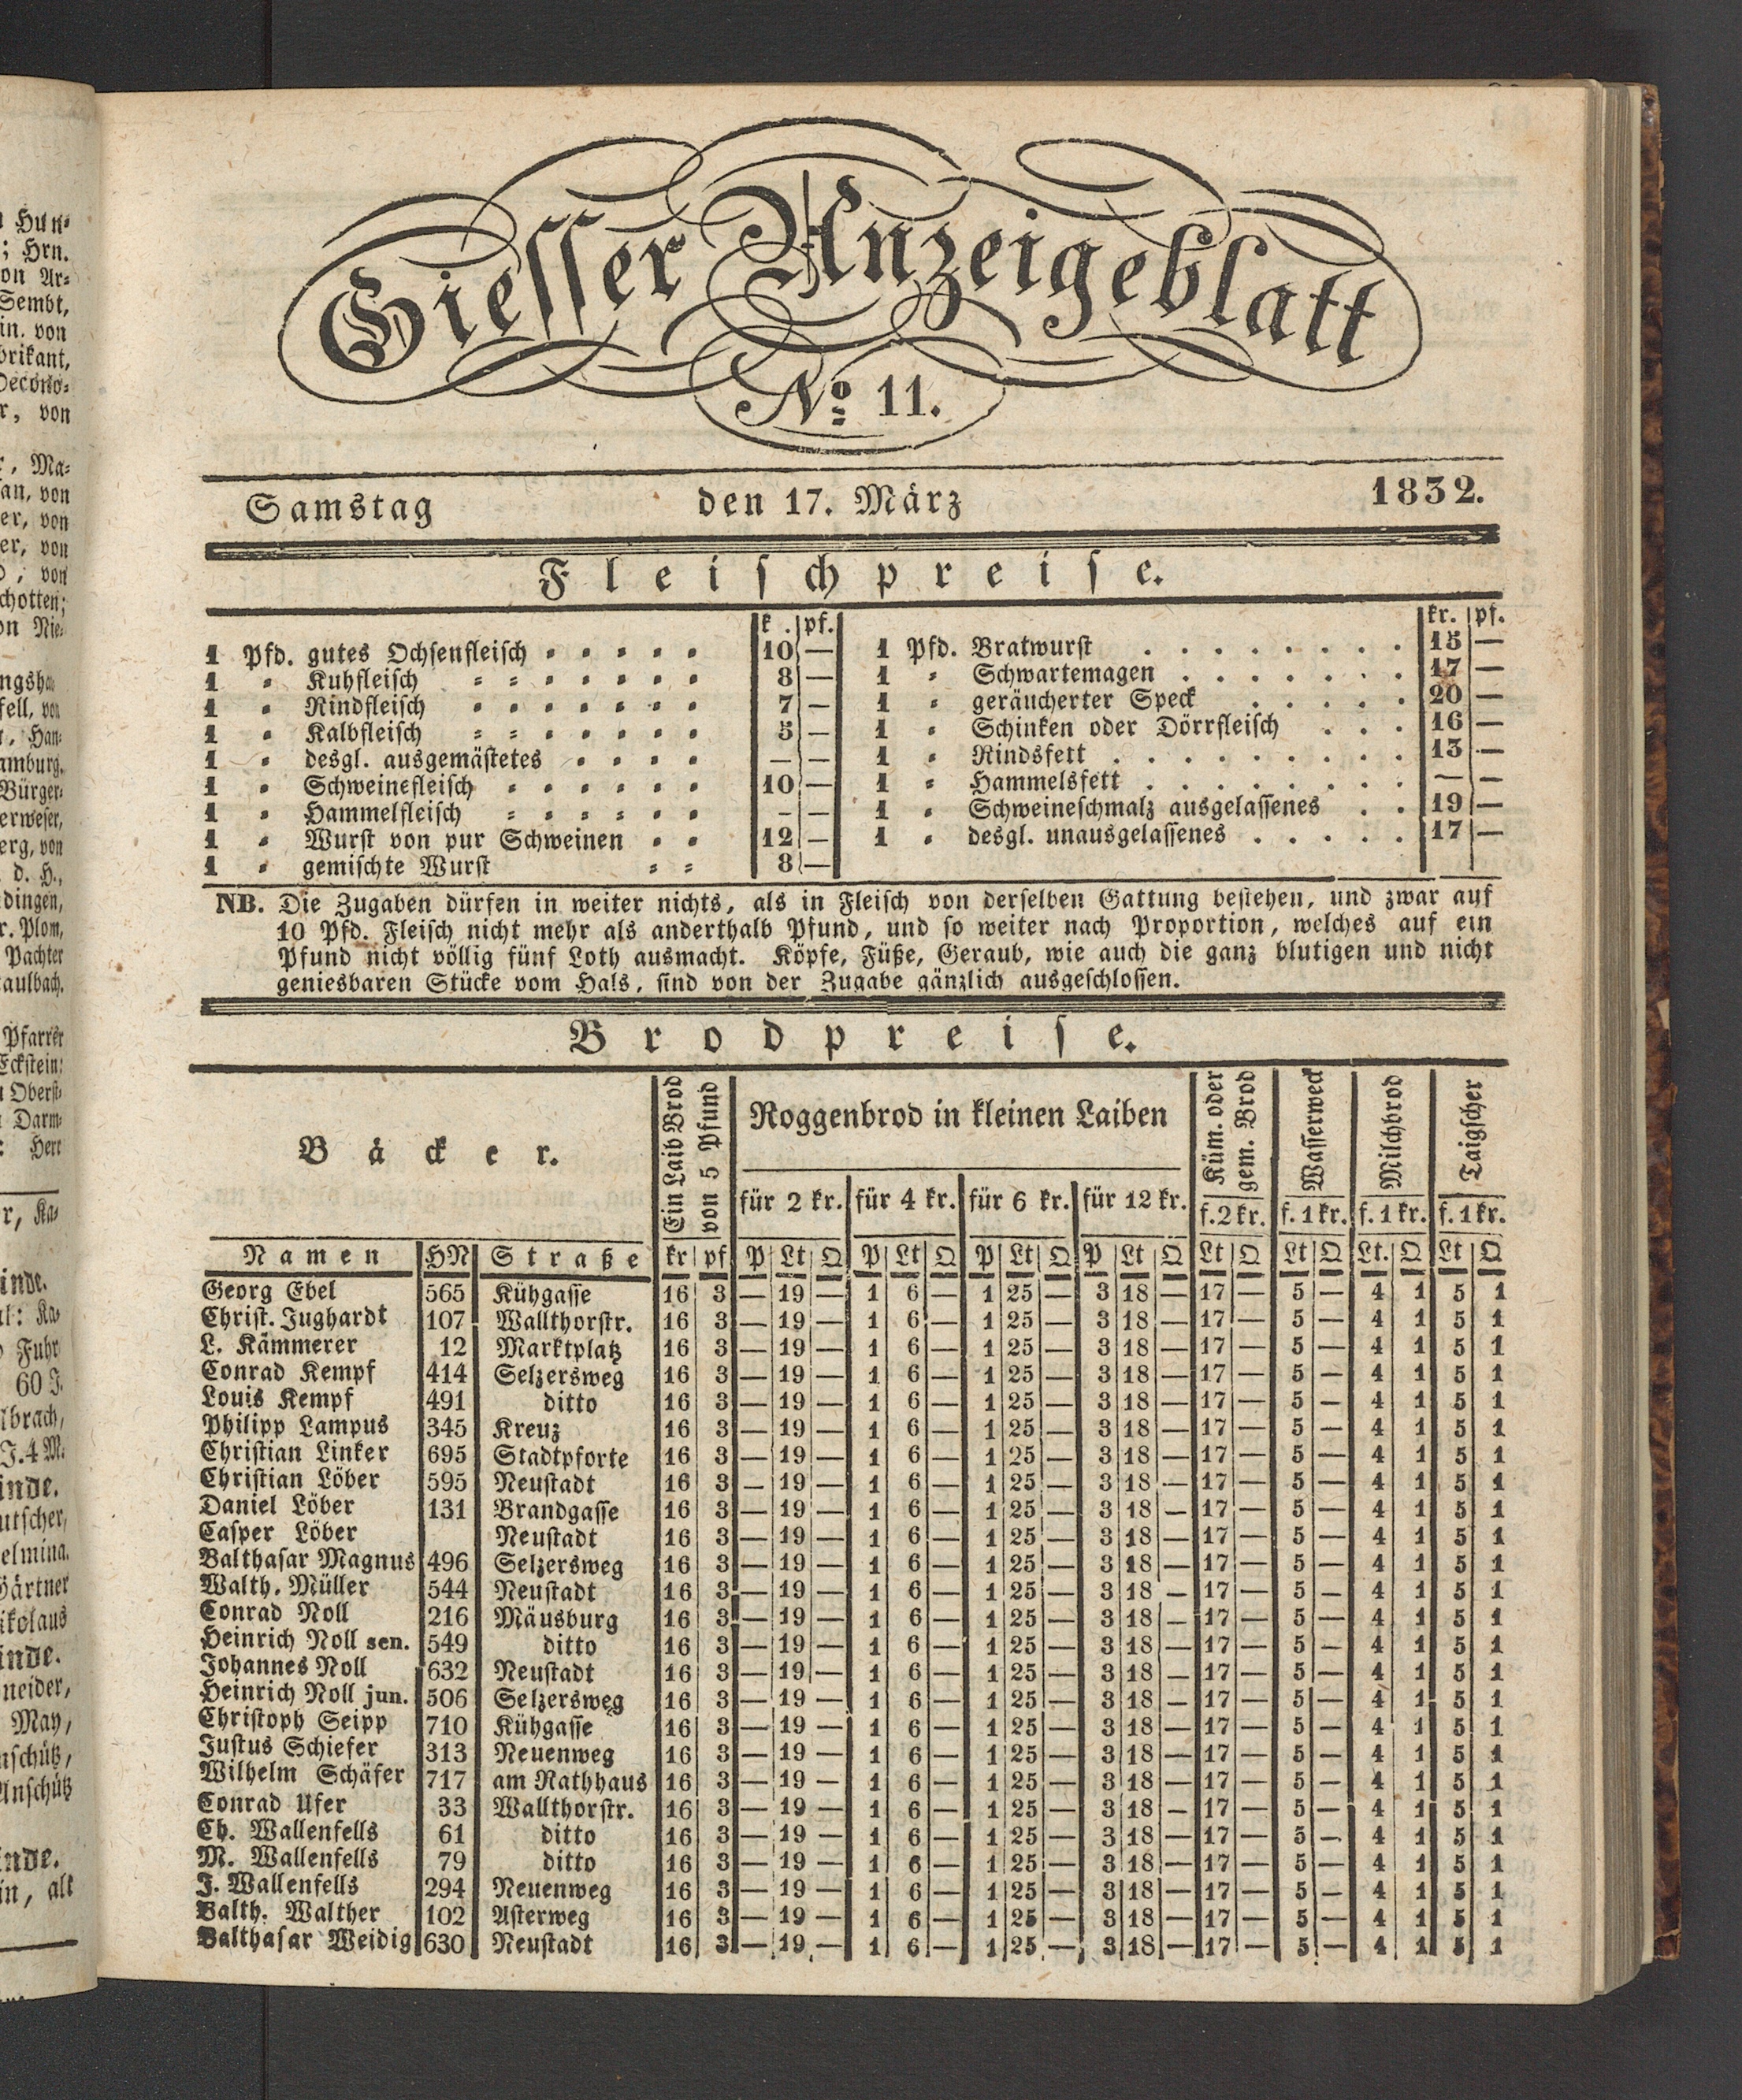 Giesser Anzeigeblatt
No. 11.
Samstag den 17. März 1832.
Fleischpreise.
k. pf.
1 Pfd. gutes Ochsenfleisch 10 —
1 " Kuhfleisch 8 —
1 " Rindfleisch 7 —
1 " Kalbfleisch 5 —
1 " desgl. ausgemästetes — —
1 " Schweinefleisch 10 —
1 " Hammelfleisch — —
1 " Wurst von pur Schweinen 12 —
1 " gemischte Wurst 8 —
kr. pf.
1 Pfd. Bratwurst 15 —
1 " Schwartemagen 17 —
1 " geräucherter Speck 20 —
1 " Schinken oder Dörrfleisch 16 —
1 " Rindsfett 13 —
1 " Hammelsfett — —
1 " Schweineschmalz ausgelassenes 19 —
1 " desgl. unausgelassenes 17 —
NB. Die Zugaben dürfen in weiter nichts, als in Fleisch von derselben Gattung bestehen, und zwar auf
10 Pfd. Fleisch nicht mehr als anderthalb Pfund, und so weiter nach Proportion, welches auf ein
Pfund nicht völlig fünf Loth ausmacht. Köpfe, Füße, Geraub, wie auch die ganz blutigen und nicht
geniesbaren Stücke vom Hals, sind von der Zugabe gänzlich ausgeschlossen.
Brodpreise.
Bäcker.
Ein Laib Brod
von 5 Pfund
Roggenbrod in kleinen Laiben
Küm. oder
gem. Brod
Wasserweck
Milchbrod
Taigscher
für 2 kr. für 4 kr. für 6 kr. für 12 kr. f. 2 kr. f. 1 kr. f. 1 kr. f. 1 kr.
Namen HN Straße kr pf P Lt Q P Lt Q P Lt Q P Lt Q Lt Q Lt Q Lt. Q Lt Q
Georg Ebel 565 Kühgasse 16 3 — 19 — 1 6 — 1 25 — 3 18 — 17 — 5 — 4 1 5 1
Christ. Jughardt 107 Wallthorstr. 16 3 — 19 — 1 6 — 1 25 — 3 18 — 17 — 5 — 4 1 5 1
L. Kämmerer 12 Marktplatz 16 3 — 19 — 1 6 — 1 25 — 3 18 — 17 — 5 — 4 1 5 1
Conrad Kempf 414 Selzersweg 16 3 — 19 — 1 6 — 1 25 — 3 18 — 17 — 5 — 4 1 5 1
Louis Kempf 491 ditto 16 3 — 19 — 1 6 — 1 25 — 3 18 — 17 — 5 — 4 1 5 1
Philipp Lampus 345 Kreuz 16 3 — 19 — 1 6 — 1 25 — 3 18 — 17 — 5 — 4 1 5 1
Christian Linker 695 Stadtpforte 16 3 — 19 — 1 6 — 1 25 — 3 18 — 17 — 5 — 4 1 5 1
Christian Löber 595 Neustadt 16 3 — 19 — 1 6 — 1 25 — 3 18 — 17 — 5 — 4 1 5 1
Daniel Löber 131 Brandgasse 16 3 — 19 — 1 6 — 1 25 — 3 18 — 17 — 5 — 4 1 5 1
Casper Löber Neustadt 16 3 — 19 — 1 6 — 1 25 — 3 18 — 17 — 5 — 4 1 5 1
Balthasar Magnus 496 Selzersweg 16 3 — 19 — 1 6 — 1 25 — 3 18 — 17 — 5 — 4 1 5 1
Walth. Müller 544 Neustadt 16 3 — 19 — 1 6 — 1 25 — 3 18 — 17 — 5 — 4 1 5 1
Conrad Noll 216 Mäusburg 16 3 — 19 — 1 6 — 1 25 — 3 18 — 17 — 5 — 4 1 5 1
Heinrich Noll sen. 549 ditto 16 3 — 19 — 1 6 — 1 25 — 3 18 — 17 — 5 — 4 1 5 1
Johannes Noll 632 Neustadt 16 3 — 19 — 1 6 — 1 25 — 3 18 — 17 — 5 — 4 1 5 1
Heinrich Noll jun. 506 Selzersweg 16 3 — 19 — 1 6 — 1 25 — 3 18 — 17 — 5 — 4 1 5 1
Christoph Seipp 710 Kühgasse 16 3 — 19 — 1 6 — 1 25 — 3 18 — 17 — 5 — 4 1 5 1
Justus Schiefer 313 Neuenweg 16 3 — 19 — 1 6 — 1 25 — 3 18 — 17 — 5 — 4 1 5 1
Wilhelm Schäfer 717 am Rathhaus 16 3 — 19 — 1 6 — 1 25 — 3 18 — 17 — 5 — 4 1 5 1
Conrad Ufer 33 Wallthorstr. 16 3 — 19 — 1 6 — 1 25 — 3 18 — 17 — 5 — 4 1 5 1
Ch. Wallenfells 61 ditto 16 3 — 19 — 1 6 — 1 25 — 3 18 — 17 — 5 — 4 1 5 1
M. Wallenfells 79 ditto 16 3 — 19 — 1 6 — 1 25 — 3 18 — 17 — 5 — 4 1 5 1
J. Wallenfells 294 Neuenweg 16 3 — 19 — 1 6 — 1 25 — 3 18 — 17 — 5 — 4 1 5 1
Balth. Walther 102 Asterweg 16 3 — 19 — 1 6 — 1 25 — 3 18 — 17 — 5 — 4 1 5 1
Balthasar Weidig 630 Neustadt 16 3 — 19 — 1 6 — 1 25 — 3 18 — 17 — 5 — 4 1 5 1